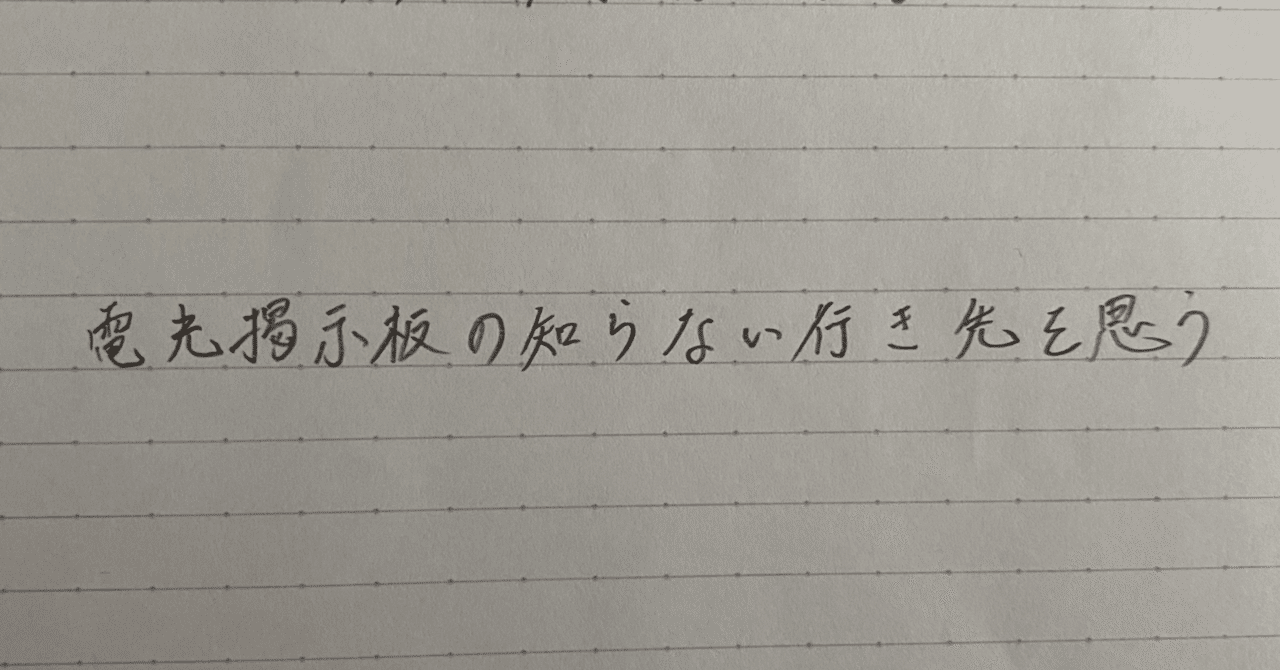 電光掲示板の知らない行き先を思う